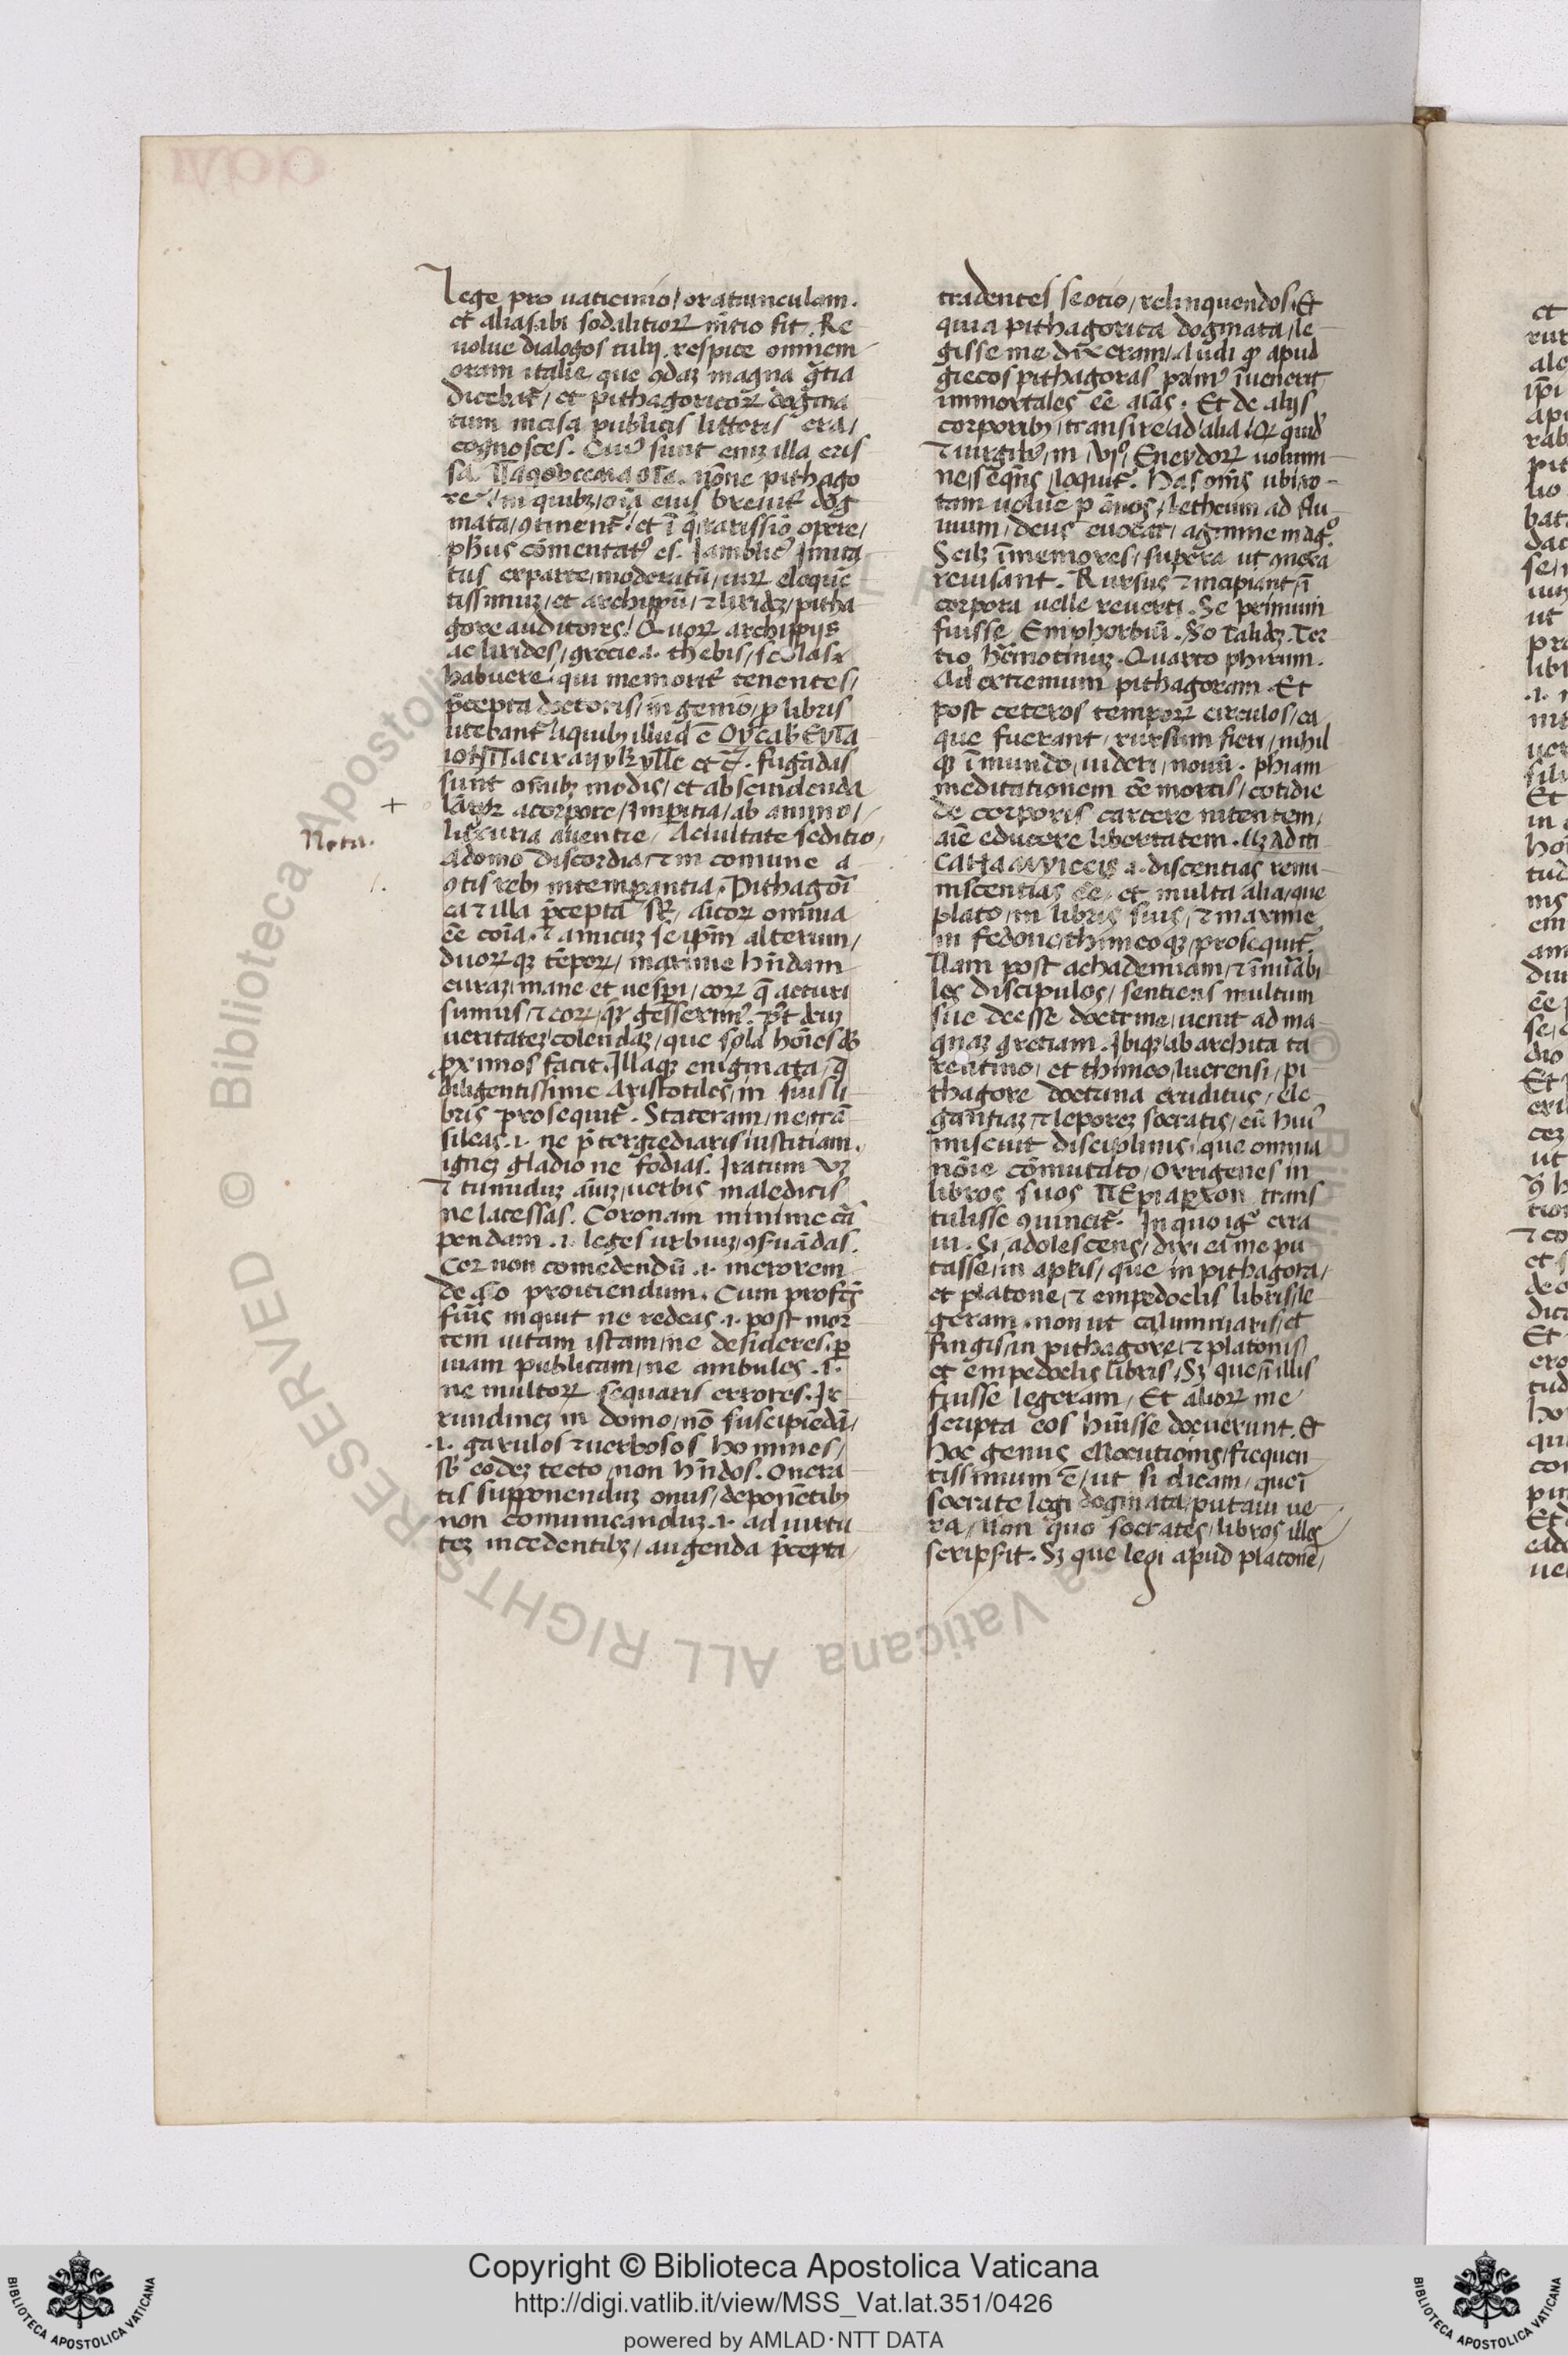 Lege pro uaticinio / oratiunculam.
et alias ibi sodalitioꝝ mẽtio fit. Re
uolue dialogos tulij. respice omnem
oram italie que ꝯdaꝫ magna gr̃tia
dicebat̃ / et pithagoricoꝝ dogma
tum incisa publicis litteris era /
cognosces. Cuiꝰ sunt eniꝫ illa cris
sa. nõne pithago
re / in quibꝫ / oĩa eius breuit̃ dog
mata / ꝯtinent̃ / et ĩ q̃ ratissiõ opere /
ph̃us cõmentatꝰ es. Jamblicꝰ Jmita
tus ex parte / moderatũ / uiꝝ eloquẽ
tissimuꝫ / et archippũ / ⁊ lirideꝫ / pitha
gore auditores / Quoꝝ archippꝰ
ac lirides / grecie .i. thebis / scolas
habuere / qui memorit̃ tenentes /
p̃cepta doctoris / ingenio / ꝓ libris
utebant̃ / e quibꝫ illud ẽ
et c̃. fugãdas
sunt oĩbꝫ modis / et abscindenda
lãgoꝝ a corpore / Jmperitia / ab animo /
luxuria a uentre / A ciuitate seditio /
A domo discordia / ⁊ in comune a
ꝯtis rebꝫ intemperantia. Pithagori
ca ⁊ illa p̃cepta st̃ / aĩcoꝝ omnia
ẽe cõia. ⁊ amicuꝫ se ip̃m alterum /
duoꝝqꝫ tẽpoꝝ / maxime hñdam
curaꝫ / mane et uesp̃i / eoꝝ q̃ acturi
sumus / ⁊ eoꝝ / que gesserimꝰ. Pꝰt deuꝫ
ueritateꝫ / colendaꝫ / que sola hoĩes deo
ꝓximos facit. Jllaqꝫ enigmata / q̃
diligentissime Aristotiles / in suis li
bris prosequit̃. Stateram / ne trã
sileas .i. ne p̃tergrediaris iustitiam.
igneꝫ gladio ne fodias. Jratum uꝫ
⁊ tumiduꝫ aĩuꝫ / uerbis maledictis
ne lacessas. Coronam minime cã
pendam .i. leges urbiuꝫ / ꝯseruãdas.
Cor non comedendũ .i. merorem
de aĩo proiiciendum. Cum profetꝰ
fuis inquit ne redeas .i. post mor
tem uitam istam / ne desideres / per
uiam publicam / ne ambules .i.
ne multoꝝ sequaris errores. Je
rundineꝫ in domo / nõ suscipiẽdã /
.i. garulos ⁊ uerbosos homines /
sb̃ eodeꝫ tecto / non hñdos. Onera
tis supponenduꝫ onus / deponẽtibꝫ
non comunicanduꝫ .i. ad uirtu
teꝫ incedentibꝫ / augenda p̃cepta /
Nota.
tradentes se otio / relinquendos. Et
quia pithagorica dogmata / le
gisse me dixeram / Audi qͦ apud
grecos pithagoras primꝰ ĩuenerit
immortales ẽe aĩas. Et de alijs
corporibꝫ / transire ad alia / Q quid
⁊ uirgiliꝰ / in / vjͦ / Eneydoꝝ uolumi
ne / seq̃ns / loquit̃. Has oms̃ ubi ro
tam uolue p ãnos / Letheum ad flu
uium / deus euocat / agmine magͦ.
Scilꝫ ĩmemores / supera ut ꝯuexa
reuisant. Rursus ⁊ incipiant / ĩ
corpora uelle reuerti. Se primum
fuisse Emphorbiũ. So Talideꝫ. Ter
tio hẽmotimuꝫ. Quarto phirum.
Ad extremum pithagoram. Et
post ceteros tempoꝝ circulos / ea
que fuerant / rursum fieri / nihil
qͦ ĩ mundo / uideri / nouũ. phiam
meditationem ẽe mortis / cotidie
de corporis carcere nitentem /
aĩe educere libertatem.
.i. discentias remi
niscentias ẽe / et multa alia / que
plato / in libris suis / ⁊ maxime
in fedone / thimeoqꝫ / prosequit̃.
Nam post achademiam / ⁊ ĩnũabi
les discipulos / sentiens multum
sue deesse doctrine / uenit ad ma
gnaꝫ gretiam. Jbiqꝫ ab archita ta
rentino / et thimeo / lucrensi / pi
thagore doctrina eruditus / ele
gantiaꝫ / ⁊ leporeꝫ socratis / cũ huiꝰ
miscuit disciplinis / que omnia
nõie cõmutato / Origenes in
libros suos ΠΕΡΙ ΑΡΧΟΝ trans
tulisse ꝯuincit̃. In quo ig̃ erra
ui. Si adolescens / dixi ea me pu
tasse / in aptis / que in pithagora /
et platone / ⁊ empedoclis libris / le
geram. non ut calumniaris / et
fingis / in pithagore / ⁊ platonis /
et empedoclis libris. Sꝫ que ĩ illis
fuisse legeram / Et alioꝝ me
scripta eos hũisse docuerunt. Et
hoc genus ellocutionis / frequen
tissimum ẽ / ut si dicam / que ĩ
socrate legi dogmata / putaui ue
ra / Non quo socrates / libros illos
scripsit. Sꝫ que legi apud platonẽ /
Copyright © Biblioteca Apostolica Vaticana
http://digi.vatlib.it/view/MSS_Vat.lat.351/0426
powered by AMLAD·NTT DATA